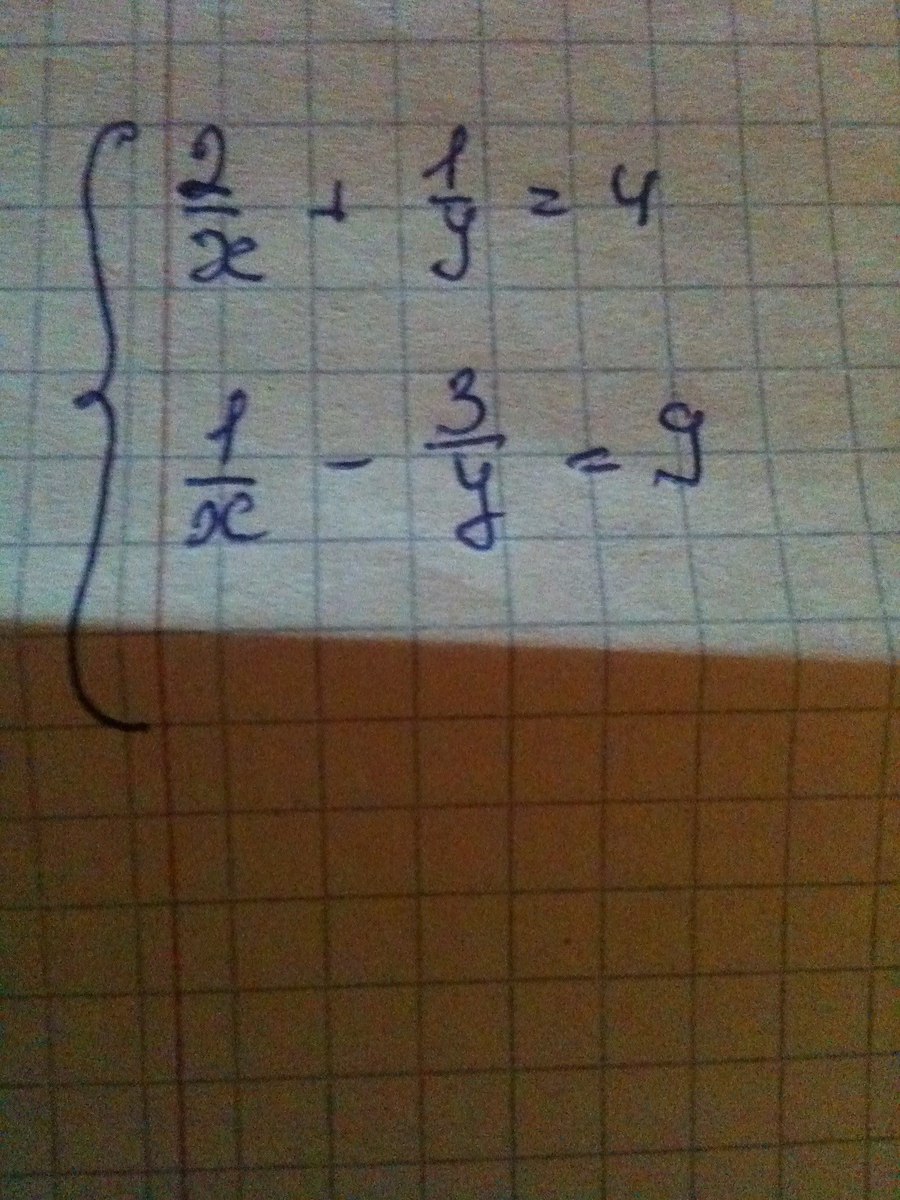 2/x + 1/y = 4
1/x - 3/y = 9